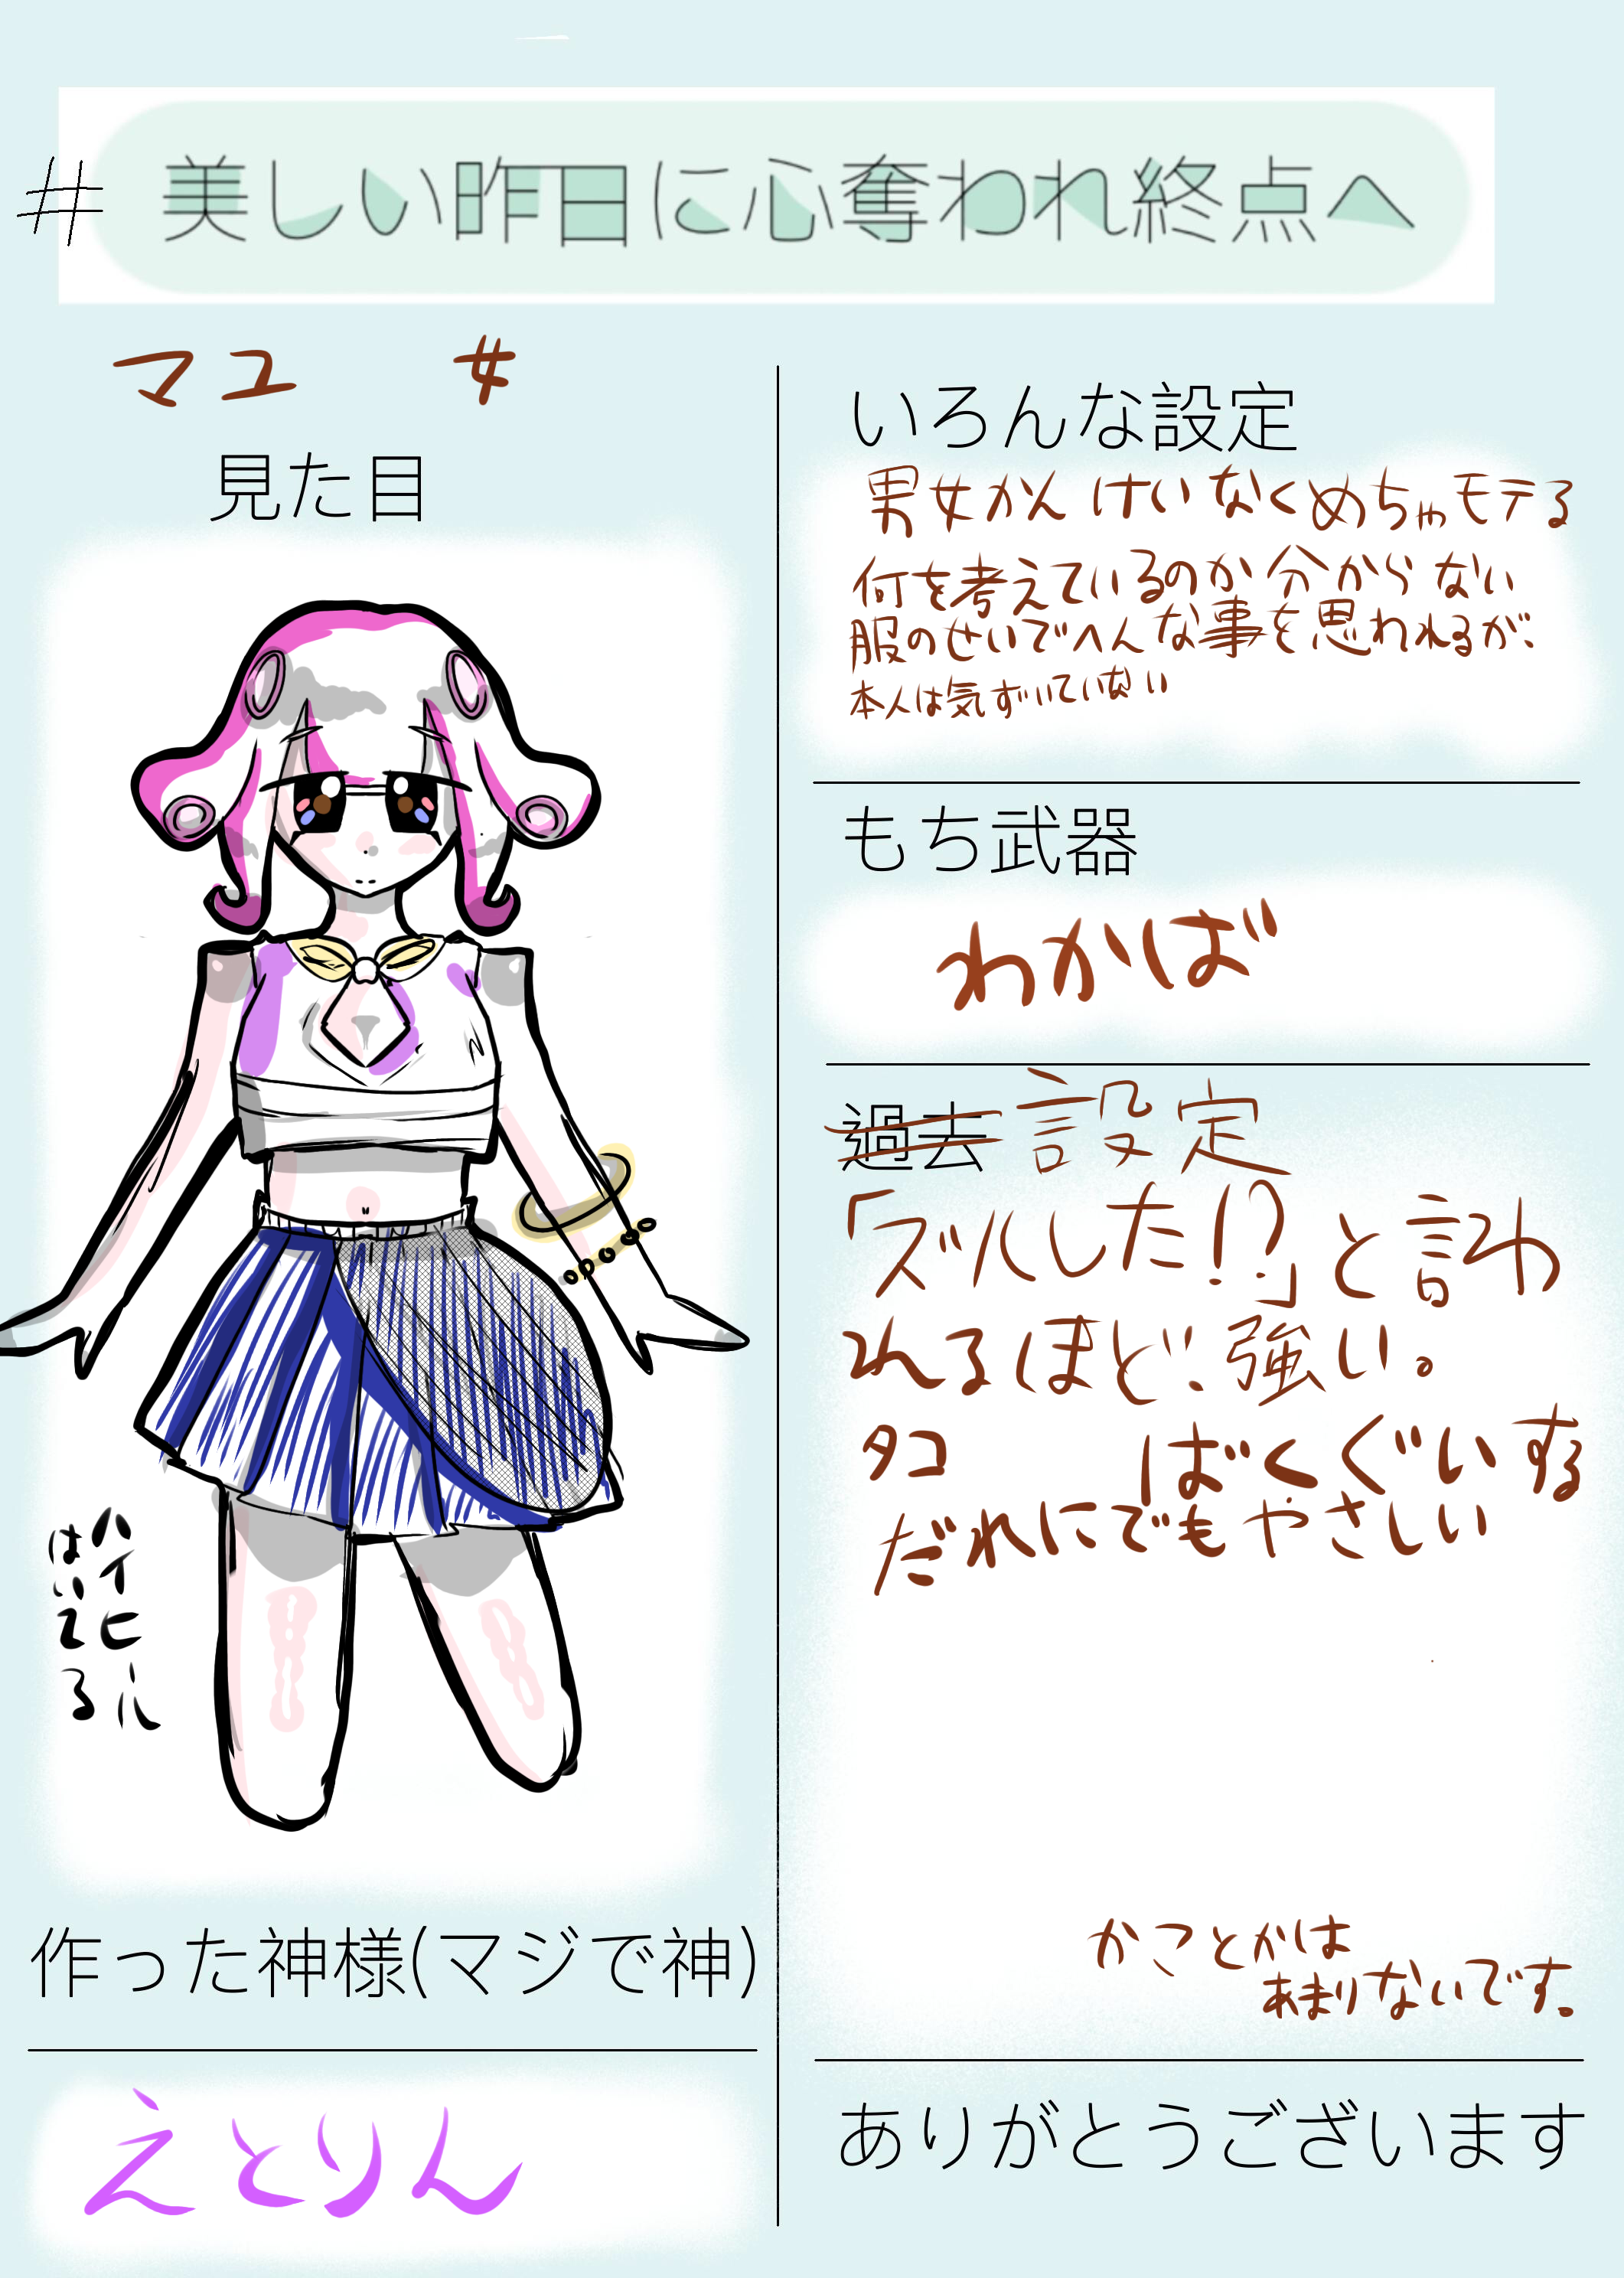 #美しい昨日に心奪われ終点へ
マユ 女
見た目
ハイヒール
はいてる
作った神様(マジで神)
えとりん
いろんな設定
男女かんけいなくめちゃモテる
何を考えているのか分からない
服のせいでへんな事を思われるが、
本人は気ずいていない
もち武器
わかば
過去 設定
「ズルした!?」と言わ
れるほど、強い。
タコ ばくぐいする
だれにでもやさしい
かことかは
あまりないです。
ありがとうございます